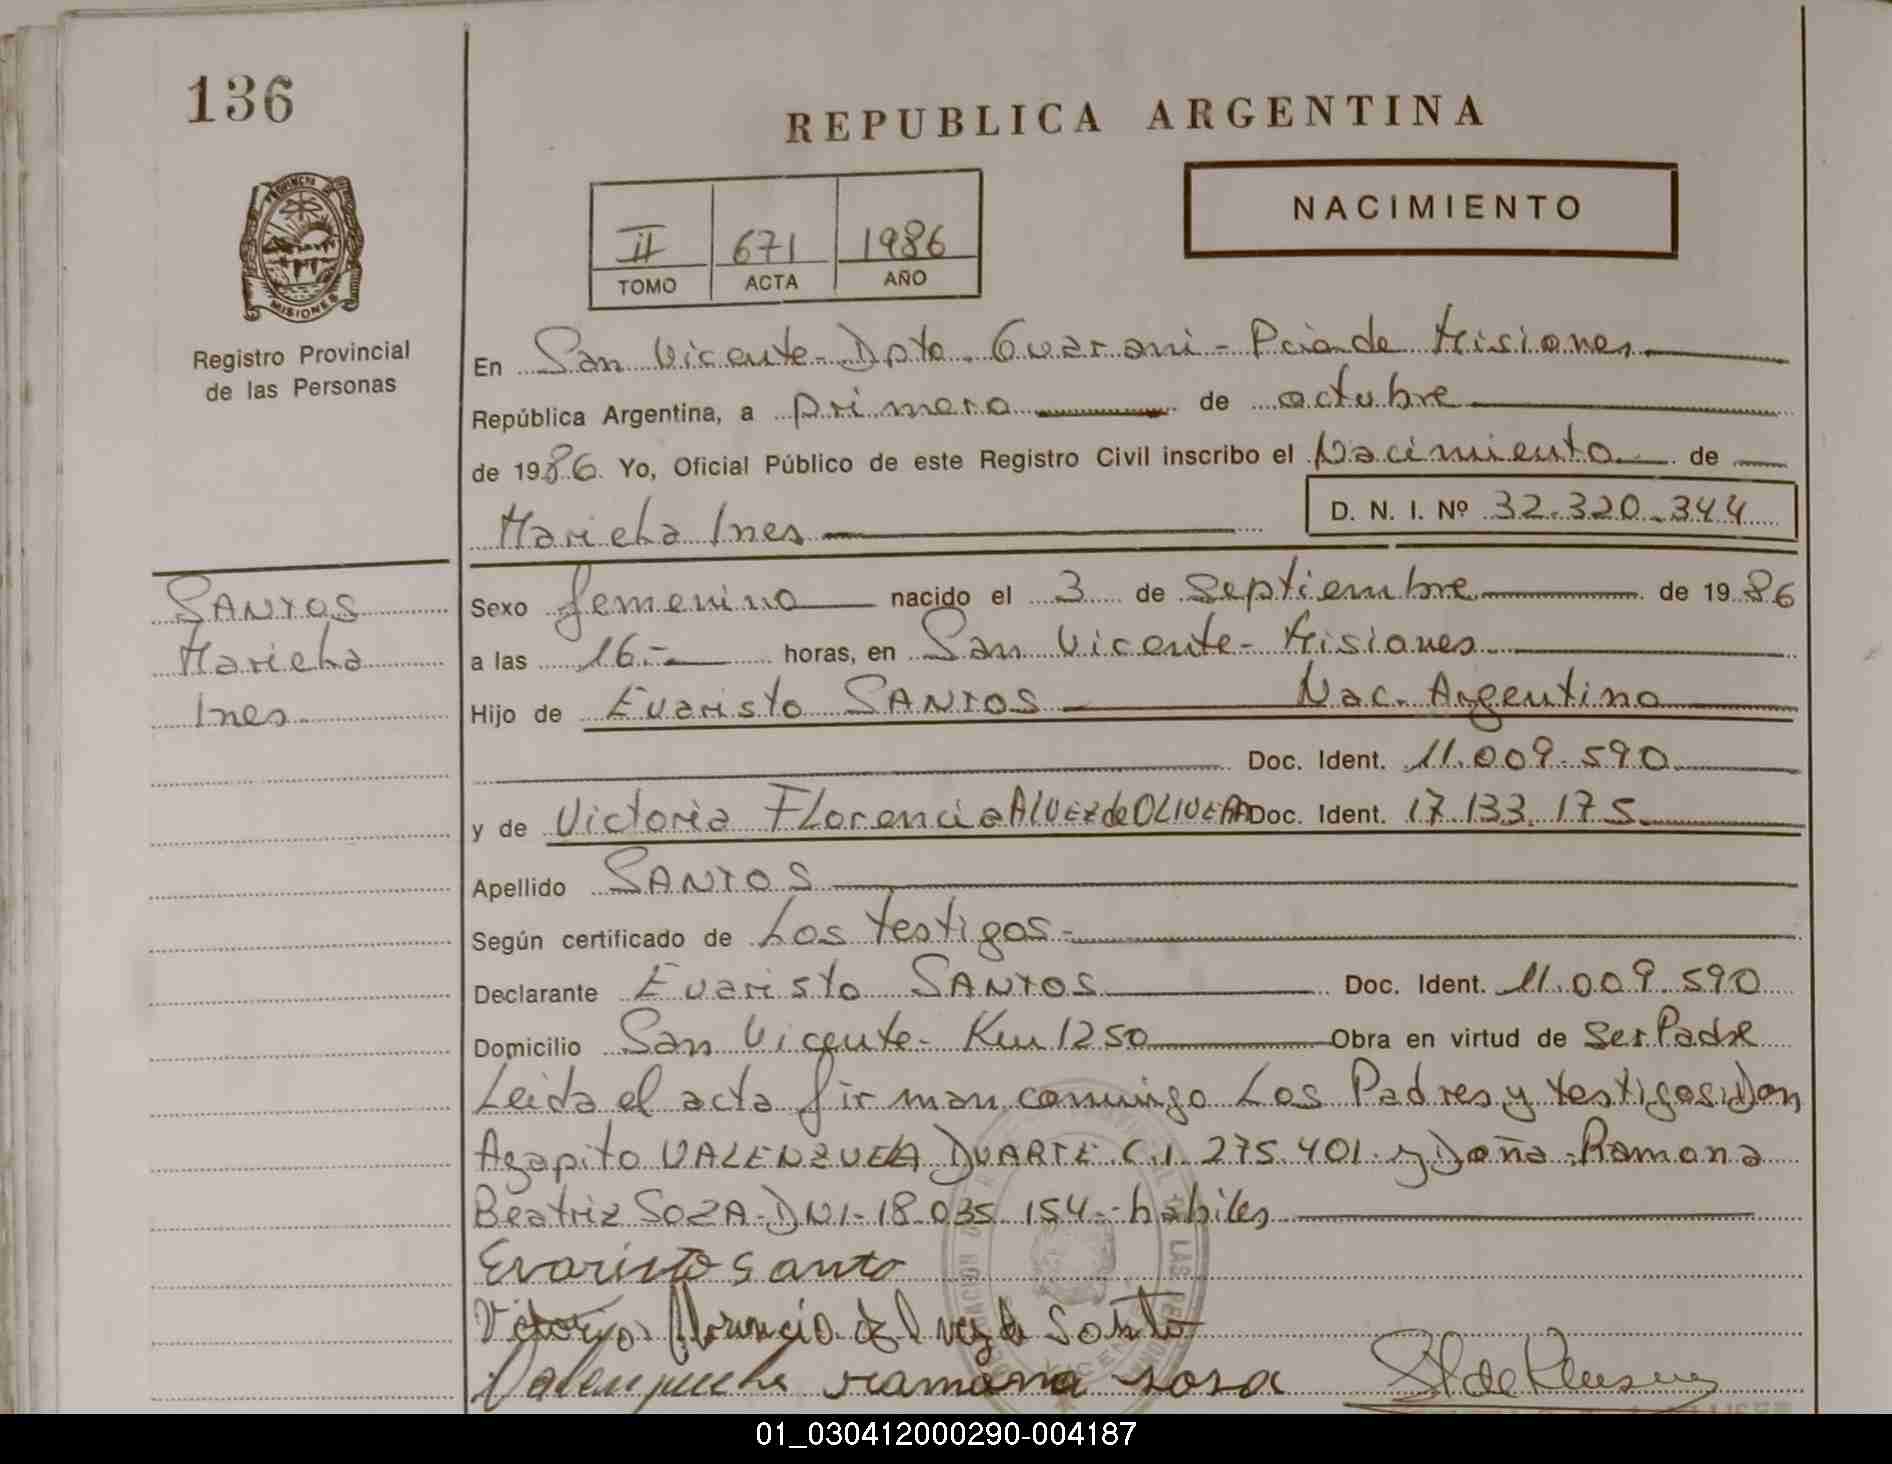 136
REPUBLICA ARGENTINA
NACIMIENTO
II 671 1986
TOMO ACTA AÑO
PROVINCIA
MISIONES
Registro Provincial
de las Personas
En San Vicente - Dpto. Guarani - Pcia de Misiones
República Argentina, a primero de octubre
de 1986. Yo, Oficial Público de este Registro Civil inscribo el Nacimiento de
Mariela Ines
D. N. I. Nº 32.320.344
SANTOS
Mariela
Ines
Sexo femenino nacido el 3 de Septiembre de 1986
a las 16.- horas, en San Vicente - Misiones
Hijo de Evaristo SANTOS Nac. Argentino
Doc. Ident. 11.009.590
y de Victoria Florencia ALVEZ de OLIVERA Doc. Ident. 17.133.175
Apellido SANTOS
Según certificado de Los testigos -
Declarante Evaristo SANTOS Doc. Ident. 11.009.590
Domicilio San Vicente - Km 1250 Obra en virtud de Ser Padre
Leida el acta firman conmigo Los Padres y testigos: Don
Agapito VALENZUELA DUARTE C.I. 275.401 y Doña Ramona
Beatriz SOZA - DNI - 18.035.154 - habiles
Evaristo Santo
ramona sosa
01_030412000290-004187